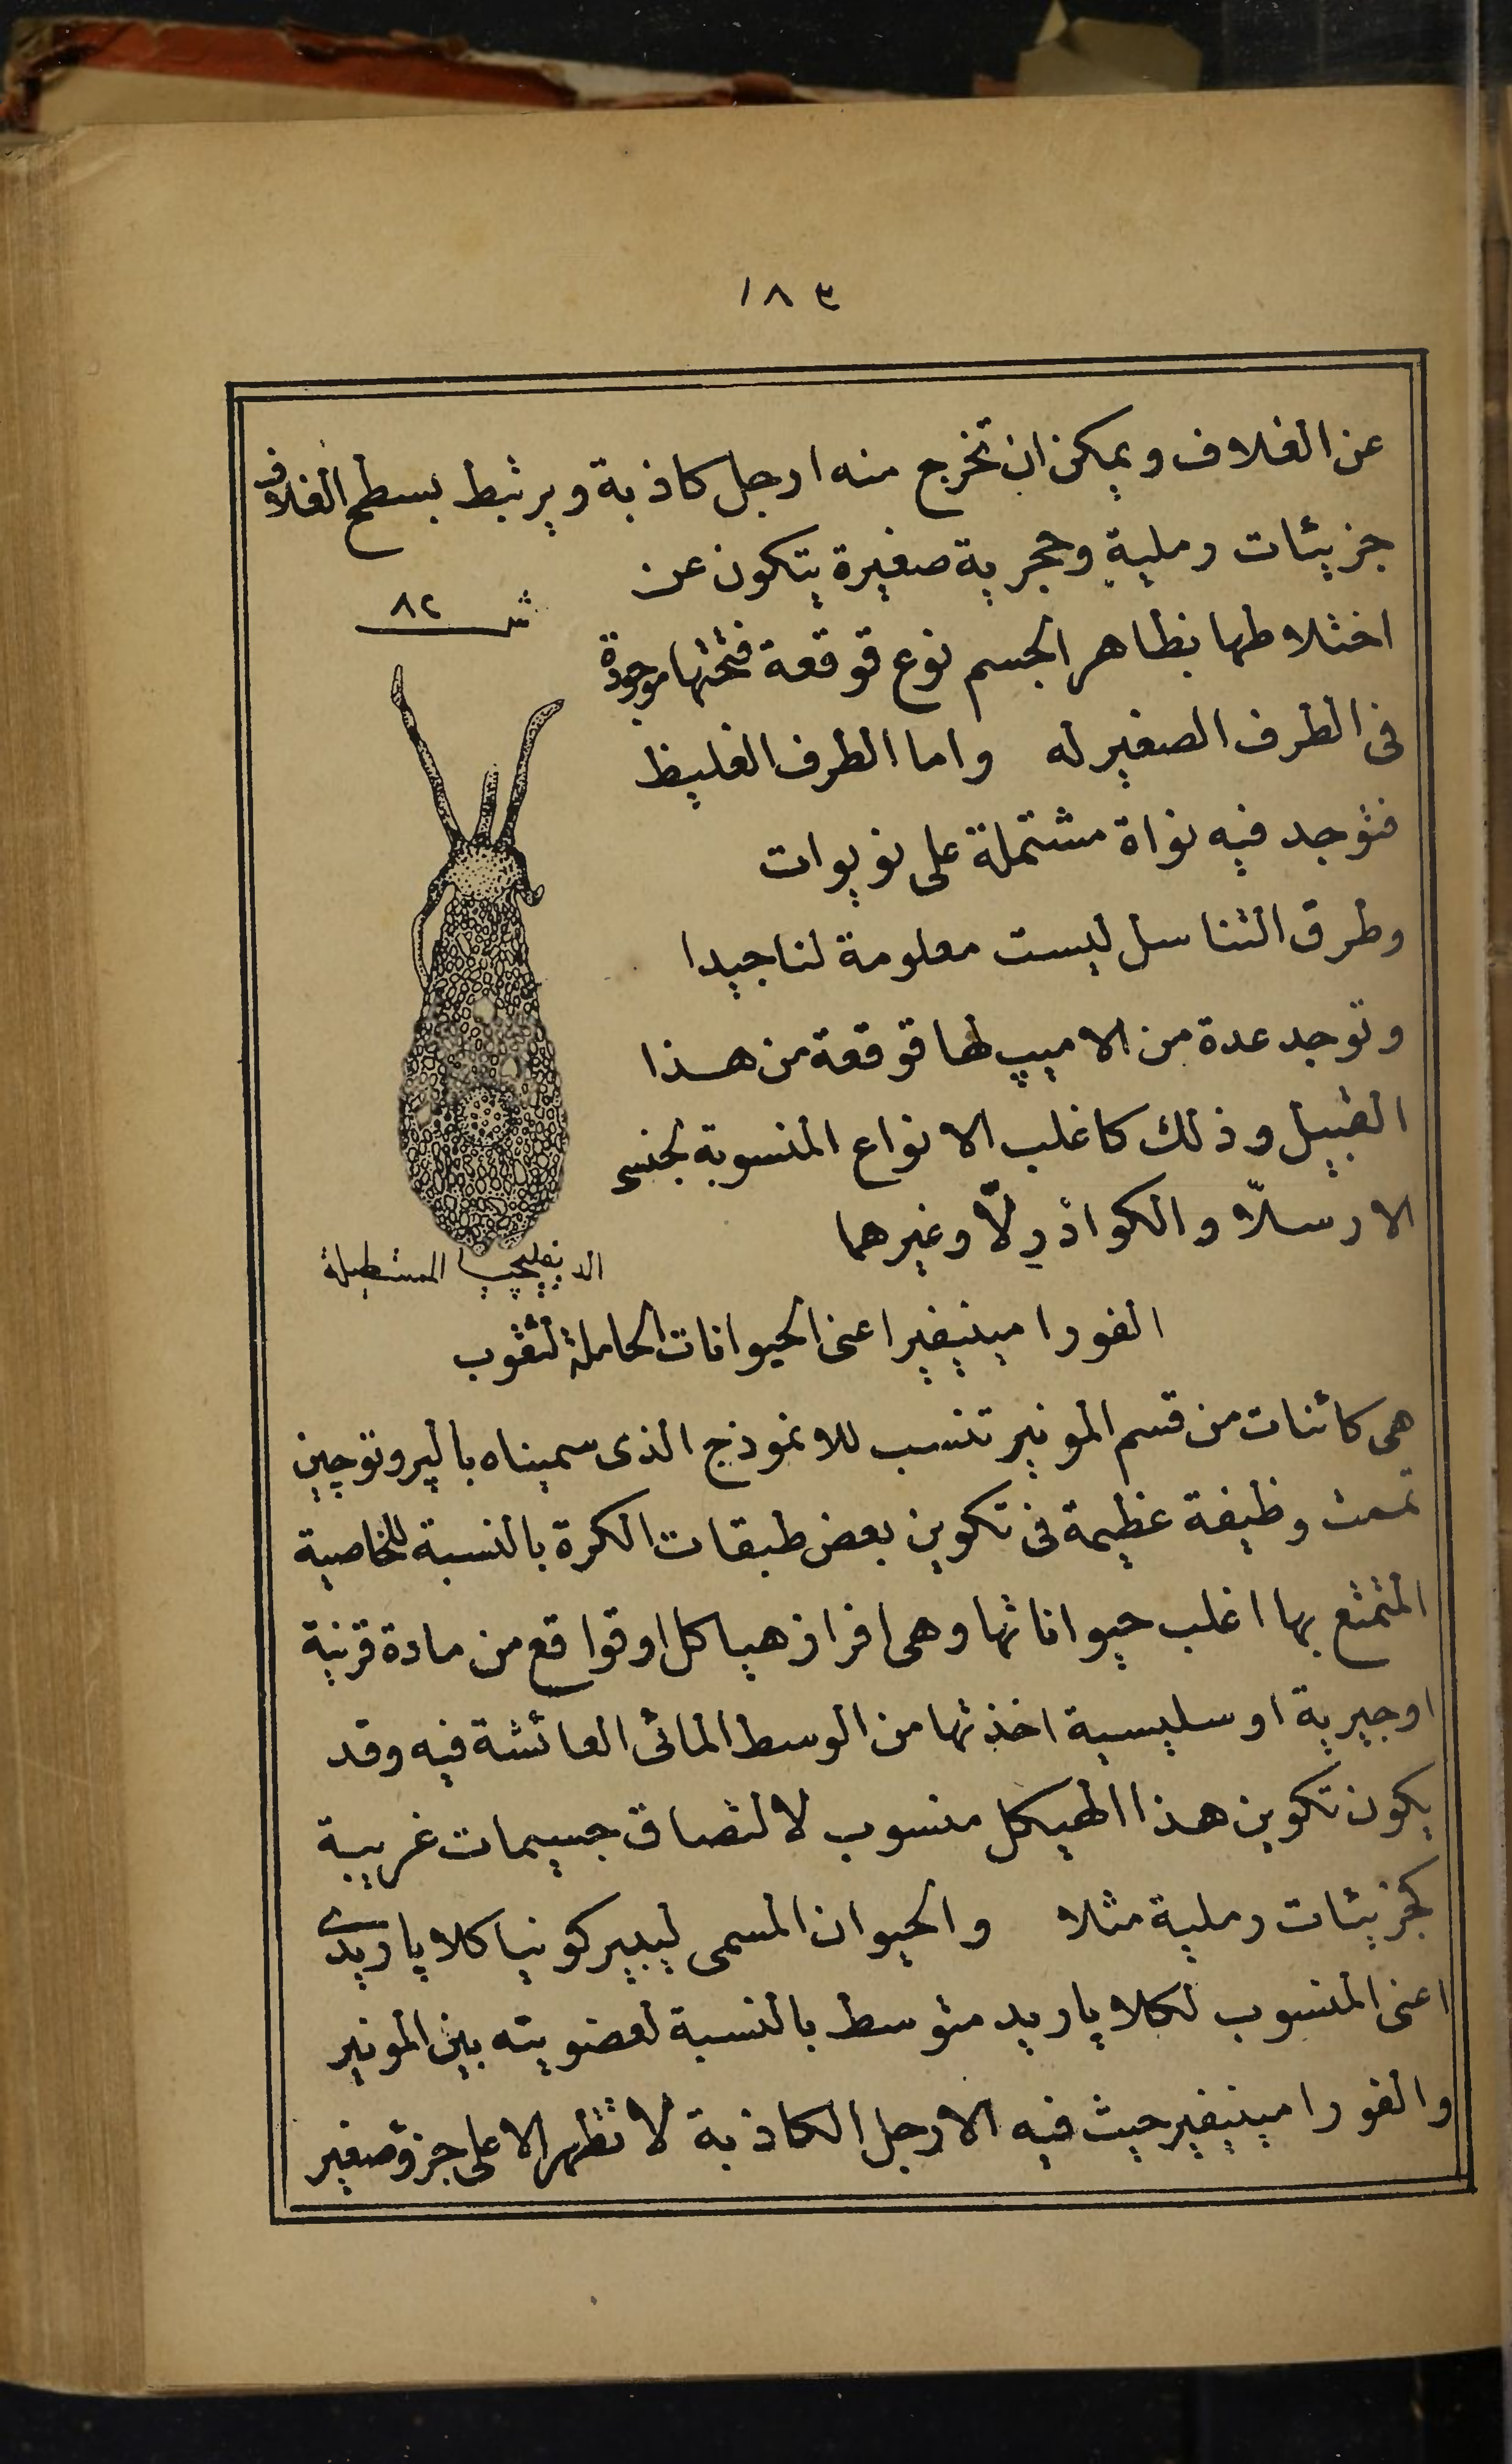 ١٨٣
عن الغلاف ويمكن ان تخرج منه ارجل كاذبة ويرتبط بسطح الغلاف
جزيئات رملية وحجرية صغيرة يتكون عن
اختلاطها بظاهر الجسم نوع قوقعة فتحتها موجودة
فى الطرف الصغير له واما الطرف الغليظ
فتوجد فيه نواة مشتملة على نويوات
وطرق التناسل ليست معلومة لنا جيدا
وتوجد عدة من الاميب لها قوقعة من هذا
القبيل وذلك كاغلب الانواع المنسوبة لجنسى
الارسلّا والكواذرلّا وغيرهما
ش ٨٢
الديفليجيا المستطيلة
الفورامينيفير اعنى الحيوانات الحاملة لثقوب
هى كائنات من قسم المونير تنسب للانموذج الذى سميناه بالپروتوجين
تممت وظيفة عظيمة فى تكوين بعض طبقات الكرة بالنسبة للخاصية
المتمتع بها اغلب حيواناتها وهى افراز هياكل او قواقع من مادة قرنية
اوجيرية او سليسية اخذتها من الوسط المائى العائشة فيه وقد
يكون تكوين هذا الهيكل منسوب لالتصاق جسيمات غريبة
كجزيئات رملية مثلا والحيوان المسمى ليبيركونيا كلاپاريدى
اعنى المنسوب لكلاپاريد متوسط بالنسبة لعضويته بين المونير
والفورامينيفير حيث فيه الارجل الكاذبة لا تظهر الا على جزؤ صغير